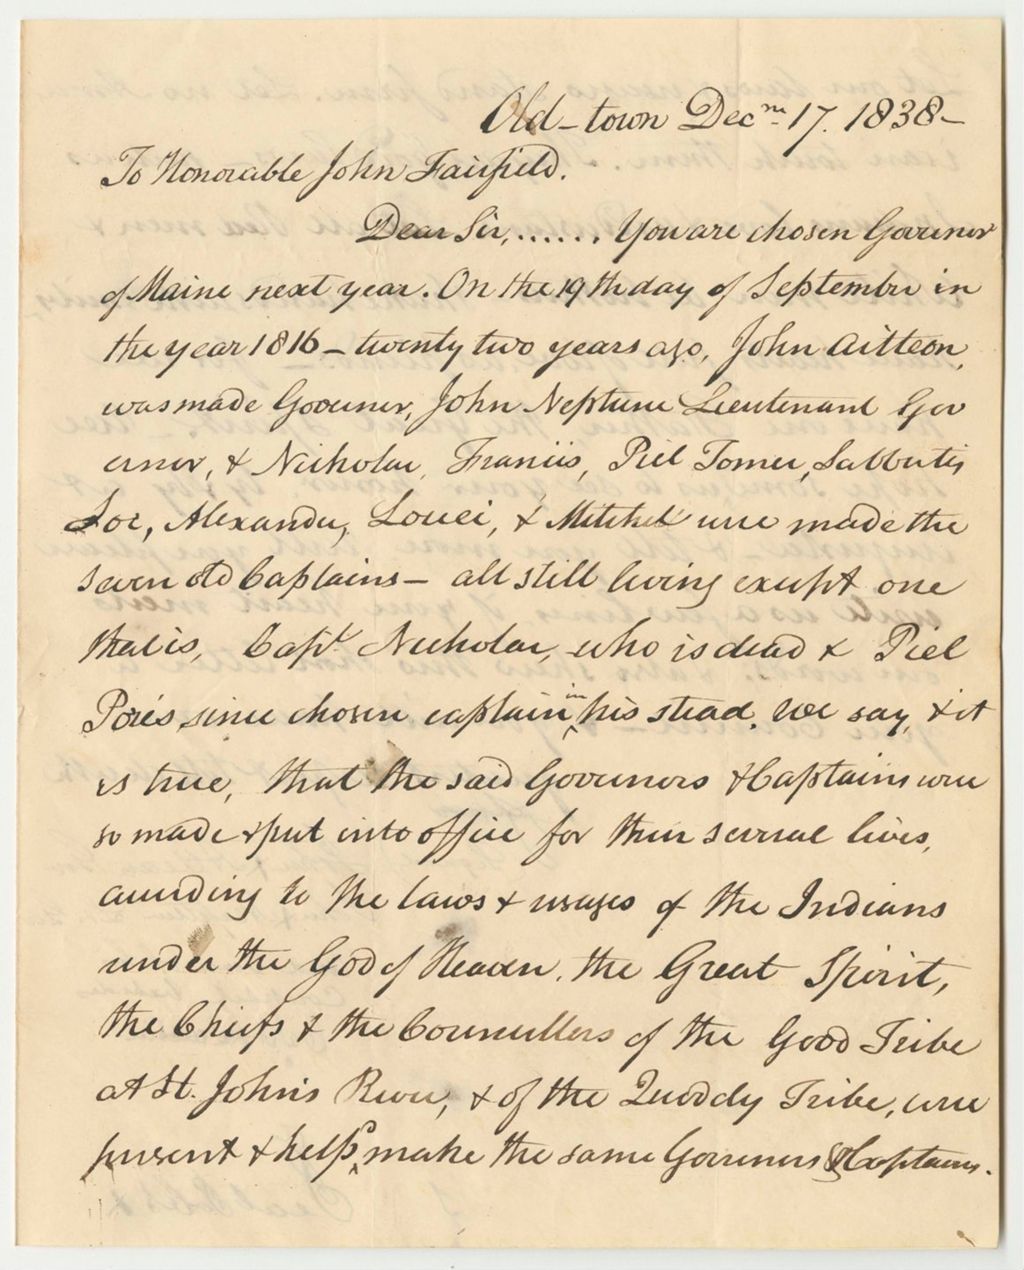 Old-town Decm 17. 1838-
To Honorable John Fairfield.
Dear Sir, ...... You are chosen Governor
of Maine next year. On the 19th day of September in
the year 1816 - twenty two years ago, John Aitteon,
was made Governer, John Neptune Lieutenant Gov
ernor, & Nicholas, Francis, Piel Tomer, Sabbutis
Joe, Alexander, Louei, & Mitchel were made the
seven old Captains - all still living except one
that is, Capt Nicholas, who is dead & Piel
Poris since chosen captain in his stead. We say, & it
is true, that the said Governors & Captains were
so made & put into office for their several lives,
according to the laws & usages of the Indians
under the God of Heaven, the Great Spirit,
the Chiefs & the Councillors of the Good Tribe
at St. John's River, & of the Quoddy Tribe, were
present & helpd make the same Governors & Captains.